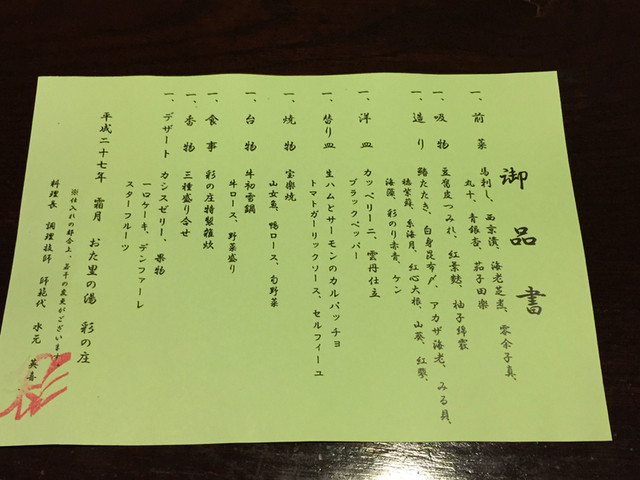 御品書
一、前菜 馬刺し、西京漬、海老芝煮、零余子真、
丸十、青銀杏、茄子田楽
一、吸物 豆腐皮つみれ、紅葉麩、柚子綿雲
一、造り 鰆たたき、白身昆布〆、アカザ海老、みる貝、
穂紫蘇、糸海月、紅心大根、山葵、紅蓼、
海藻、彩のり赤青、ケン
一、洋皿 カッペリーニ、雲丹仕立
ブラックペッパー
一、替り皿 生ハムとサーモンのカルパッチョ
トマトガーリックソース、セルフィーユ
一、焼物 宝楽焼
山女魚、鴨ロース、旬野菜
一、台物 牛初雪鍋
牛ロース、野菜盛り
一、食事 彩の庄特製雑炊
一、香物 三種盛り合せ
一、デザート カシスゼリー、果物
一口ケーキ、デンファーレ
スターフルーツ
平成二十七年 霜月 おた里の湯 彩の庄
※仕入れの都合上、若干の変更がございます。
料理長 調理技師 師範代 水元 英喜